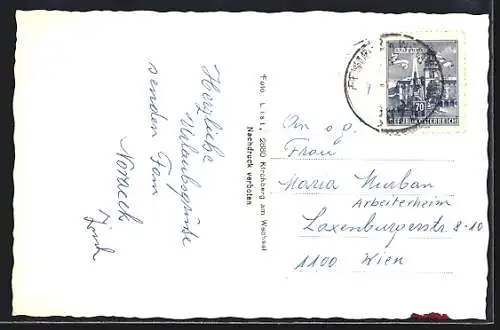 Herzliche
Urlaubsgrüße
senden Fam
Foto List, 2880 Kirchberg am Wechsel
Nachdruck verboten
70
REPUBLIK ÖSTERREICH
An o.g.
Frau
Maria Kurban
Arbeiterheim
Laxenburgerstr 8-10
1100 Wien